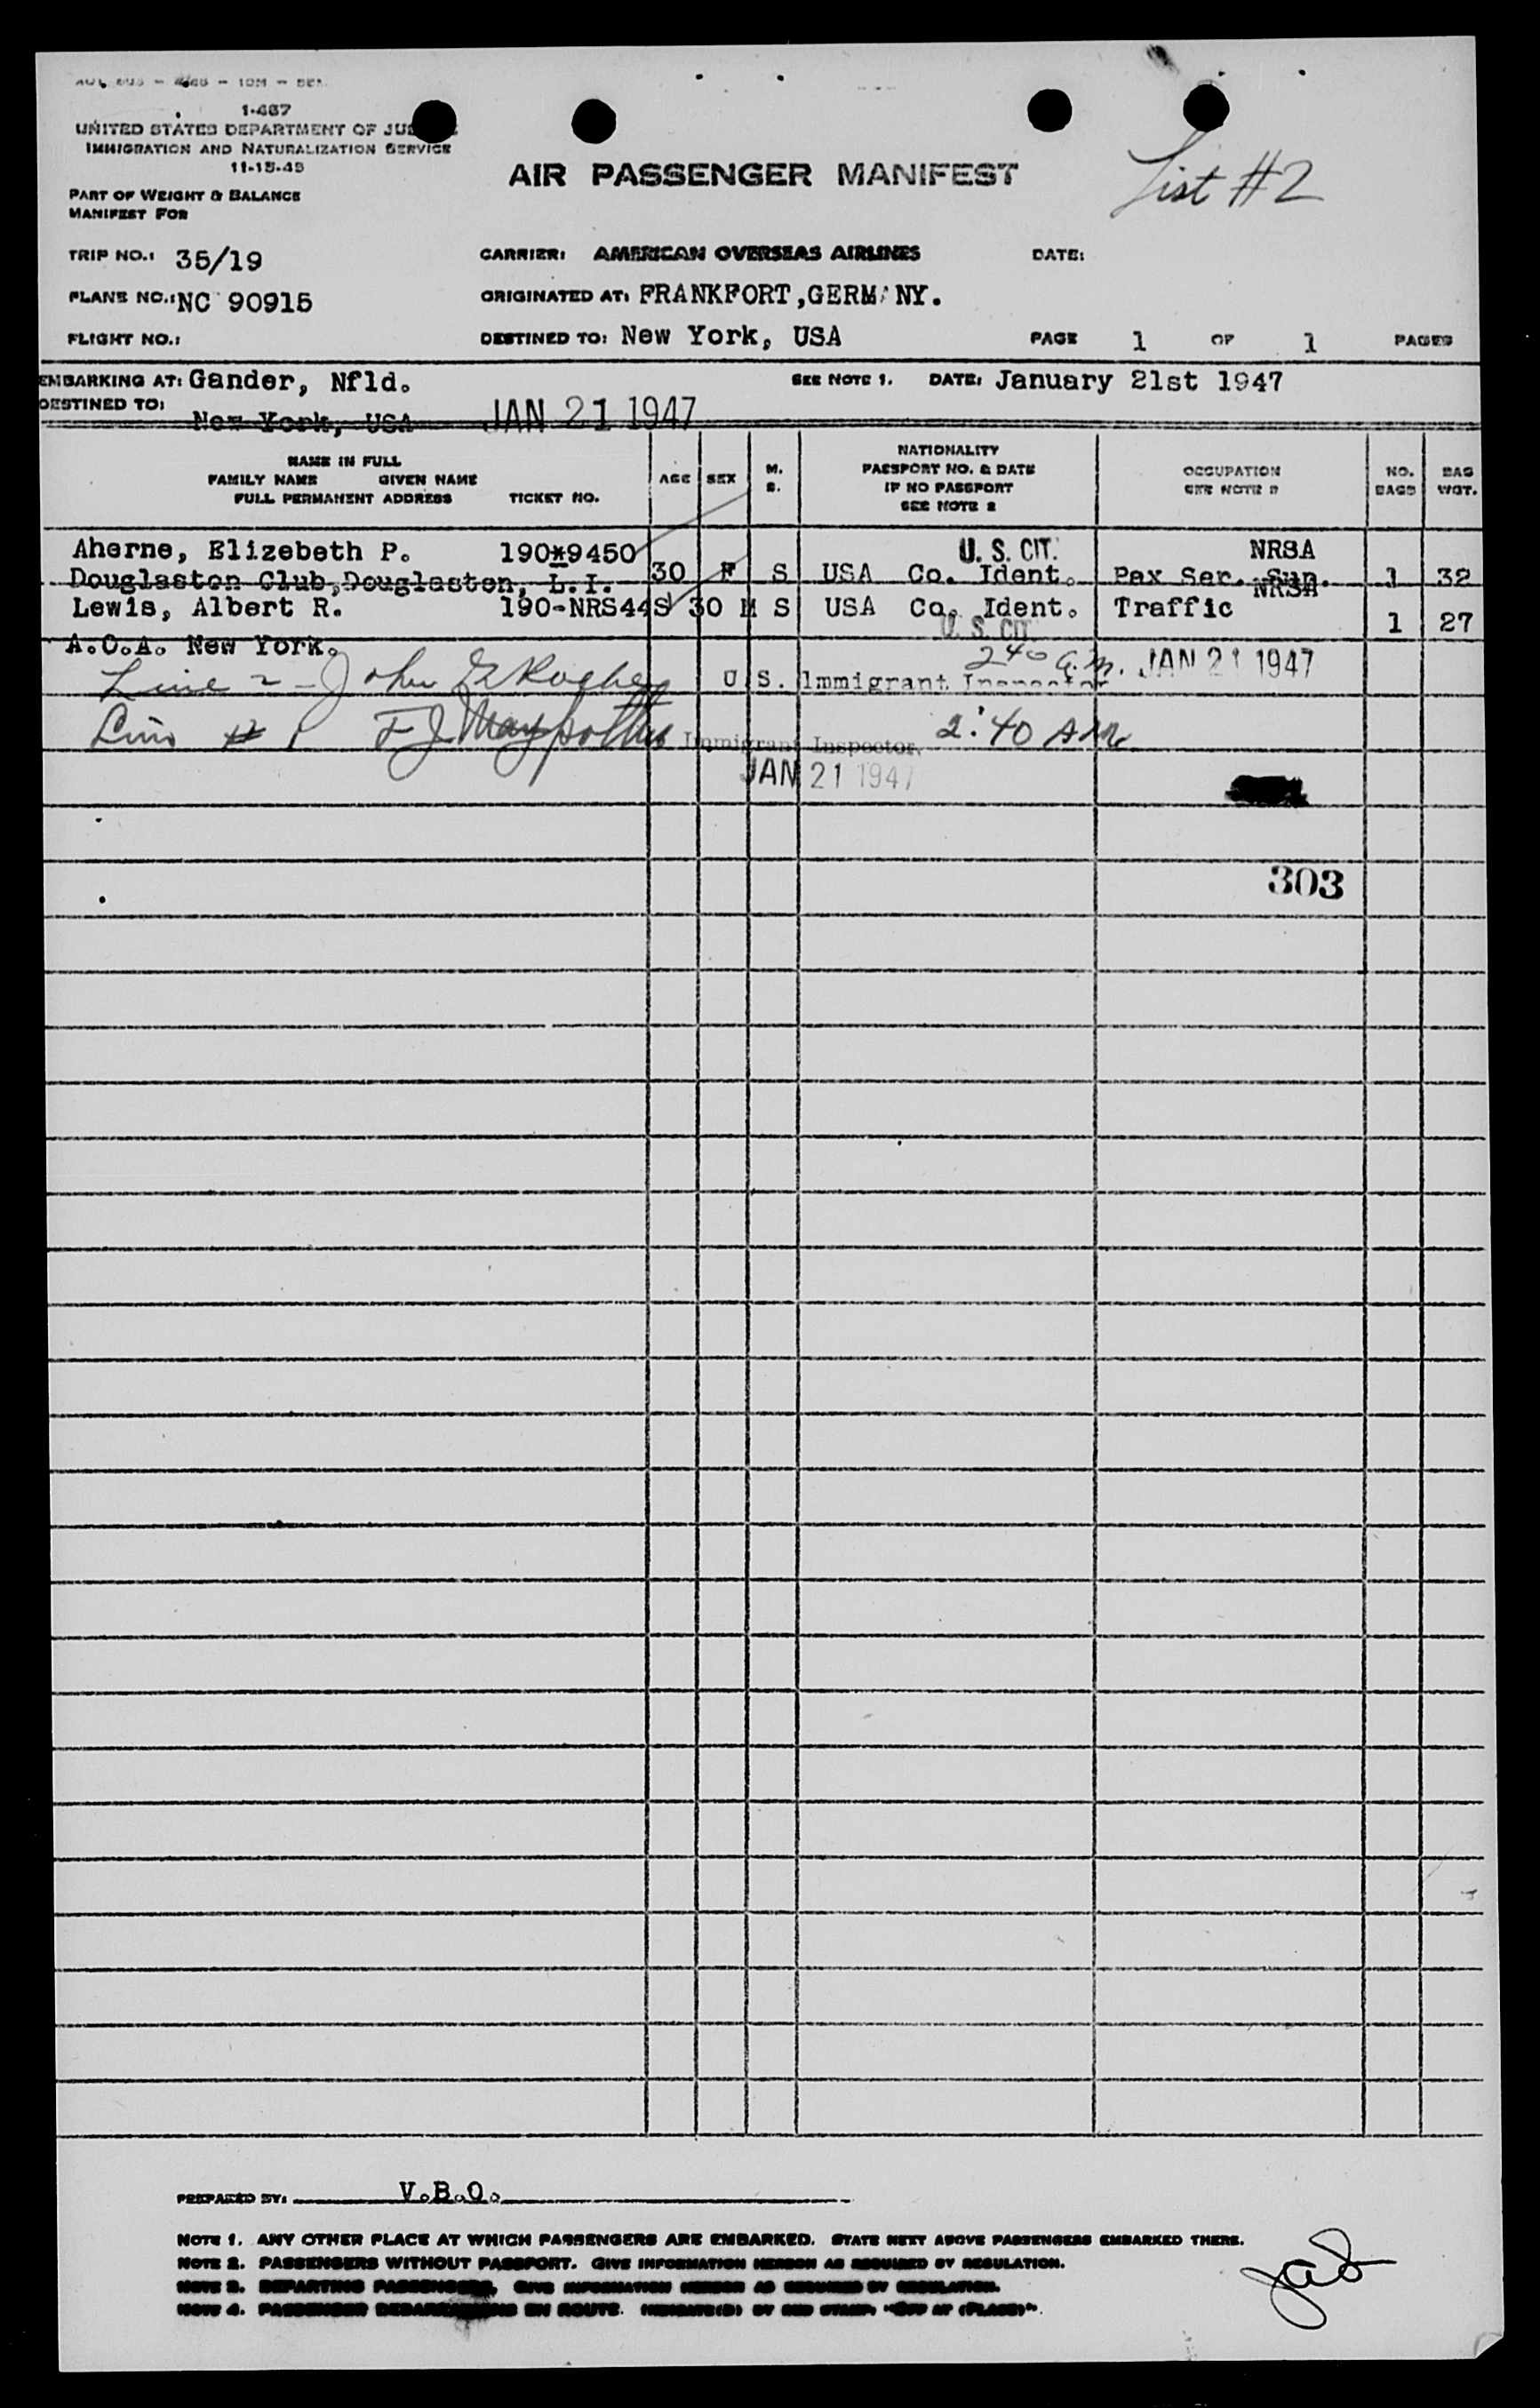 1-467
UNITED STATES DEPARTMENT OF
IMMIGRATION AND NATURALIZATION SERVICE
11-15-45
PART OF WEIGHT & BALANCE
MANIFEST FOR
AIR PASSENGER MANIFEST
List #2
TRIP NO.: 35/19 CARRIER: AMERICAN OVERSEAS AIRLINES DATE:
PLANE NO.: NC 90915 ORIGINATED AT: FRANKFORT,GERMANY.
FLIGHT NO.: DESTINED TO: New York, USA PAGE 1 OF 1 PAGES
EMBARKING AT: Gander, Nfld. SEE NOTE 1. DATE: January 21st 1947
DESTINED TO: New York, USA JAN 21 1947
NAME IN FULL
FAMILY NAME GIVEN NAME
FULL PERMANENT ADDRESS TICKET NO. AGE SEX M. S. NATIONALITY PASSPORT NO. & DATE IF NO PASSPORT SEE NOTE 2 OCCUPATION SEE NOTE NO. BAGS BAG WGT.
Aherne, Elizebeth P. 190*9450 U. S. CIT. NRSA
Douglaston Club,Douglaston, L.I. 30 F S USA Co. Ident. Pax Ser. Sup. 1 32
NRSA
Lewis, Albert R. 190-NRS44S 30 M S USA Co. Ident. Traffic 1 27
U. S. CIT.
A.O.A. New York.
Line 2 - John U.S. Immigrant Inspector 240 a.m. JAN 21 1947
Line # 1 F J Immigrant Inspector. 2:40 AM
JAN 21 1947
303
PREPARED BY: V.B.O.
NOTE 1. ANY OTHER PLACE AT WHICH PASSENGERS ARE EMBARKED. STATE NEXT ABOVE PASSENGERS EMBARKED THERE.
NOTE 2. PASSENGERS WITHOUT PASSPORT. GIVE INFORMATION HEREON AS REQUIRED BY REGULATION.
NOTE 3. DEPARTING PASSENGERS, GIVE INFORMATION HEREON AS REQUIRED BY REGULATION.
NOTE 4. PASSENGER EN ROUTE. BY RED STAMP, "OFF AT (PLACE)".